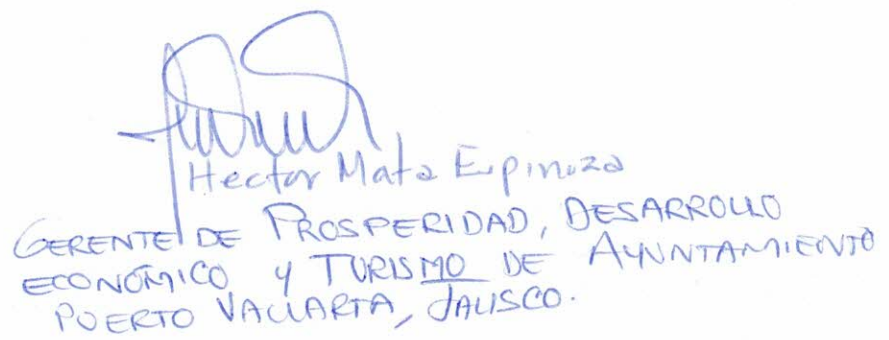 Hector Mata Espinoza
GERENTE DE PROSPERIDAD, DESARROLLO
ECONÓMICO y TURISMO DE AYUNTAMIENTO
PUERTO VALLARTA, JALISCO.